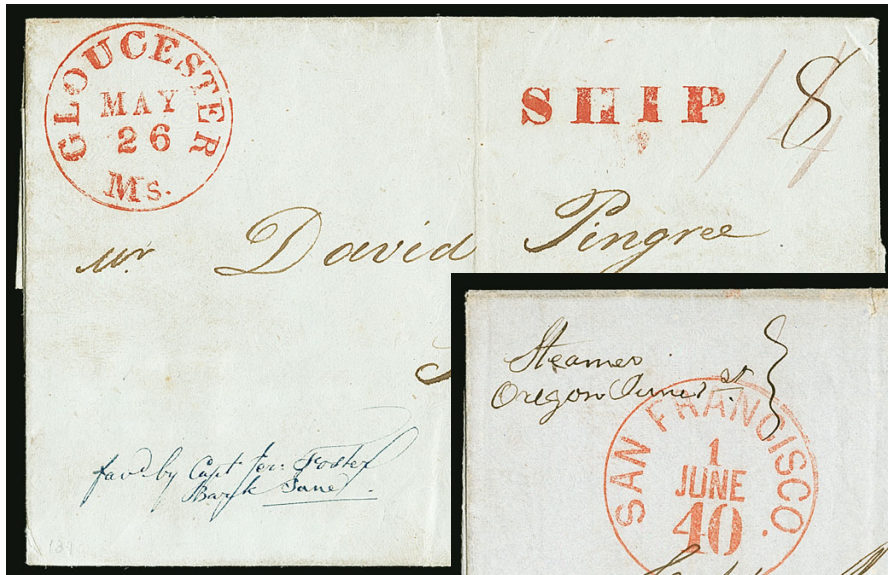 GLOUCESTER
MAY
26
Ms.
SHIP
8
Mr David Pingree
fav.d by Capt Jer: Foster
Bark Jane
Steamer
Oregon June 1st
SAN FRANCISCO.
1
JUNE
40